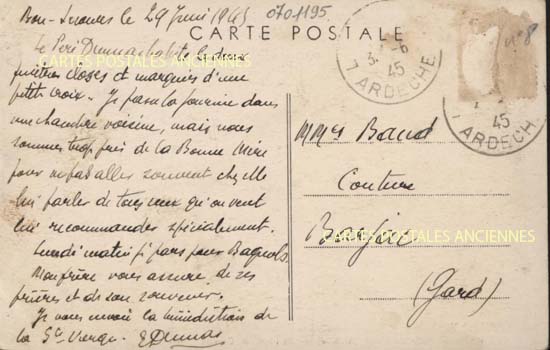 le 29 Juin 1945
0701195
n°8
CARTE POSTALE
Le Père Dumas habite la deux
CARTES POSTALES ANCIENNES
fenêtres closes et marquées d'une
petite croix. Je passe la journée dans
une chambre voisine, mais nous
sommes trop près de la Bonne Mère
pour ne pas aller souvent chez elle
lui parler de tous ceux qu'on veut
lui recommander spécialement.
Lundi matin je pars pour Bagnols
Mon frère vous assure de ses
prières et de son souvenir.
Je vous envoie la bénédiction de
la Ste Vierge. E Dumas
6
45
ARDECHE
45
ARDECH
Baud
Couture
CARTES POSTALES ANCIENNES
(Gard)